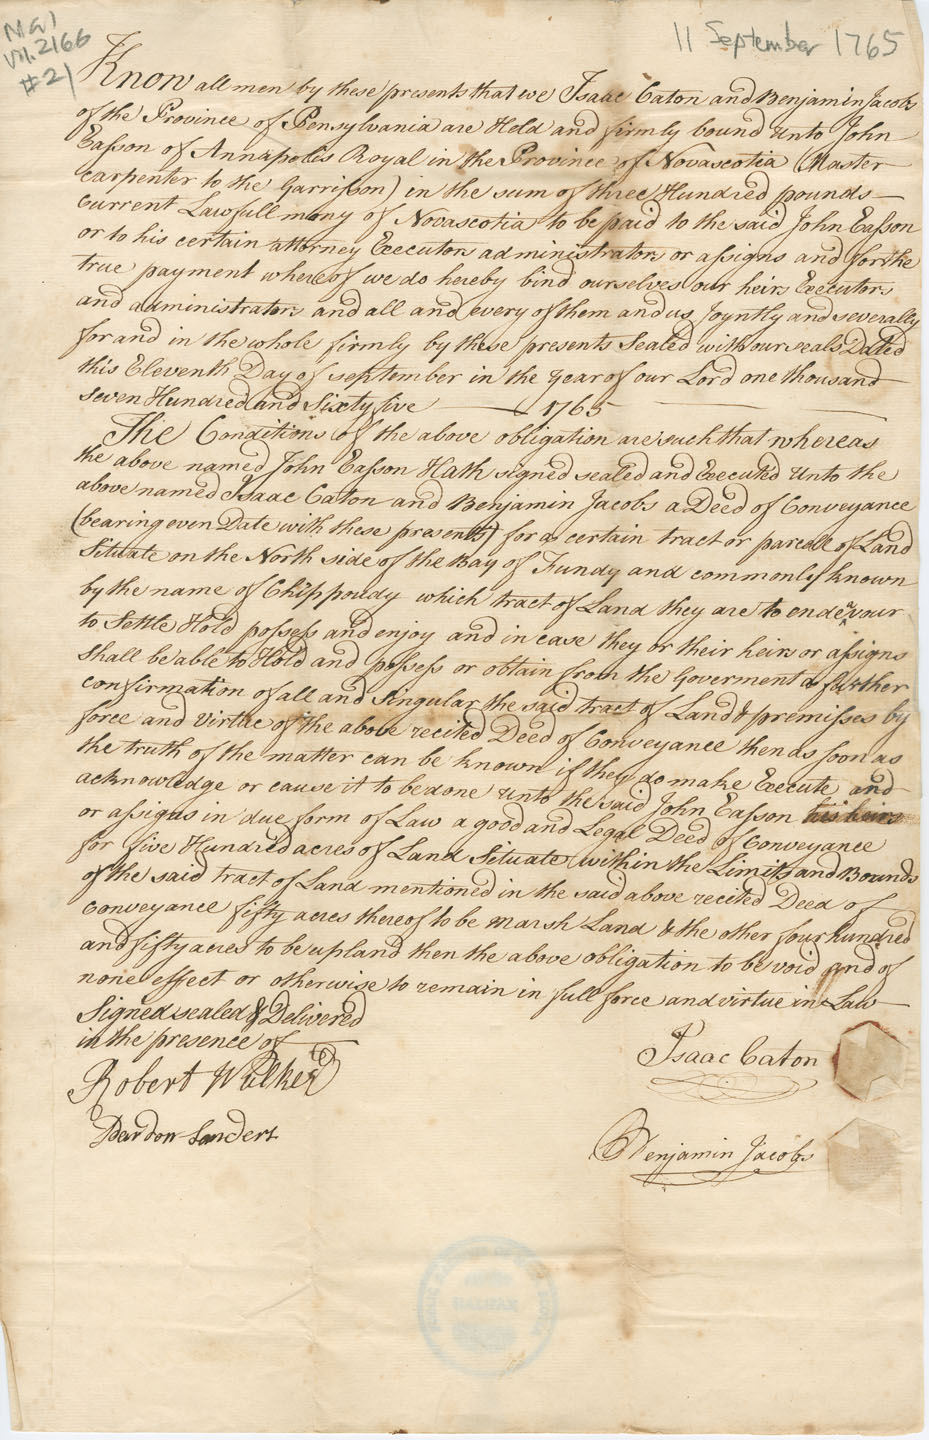 MG1
Vol. 2166
#21
11 September 1765
Know all men by these presents that we Isaac Caton and Benjamin Jacobs
of the Province of Pensylvania are Held and firmly bound unto John
Easson of Annapolis Royal in the Province of Novascotia (Master
carpenter to the Garrisson) in the sum of three Hundred pounds
Current Lawfull mony of Novascotia to be paid to the said John Easson
or to his certain attorney Executors administrators or assigns and for the
true payment whereof we do hereby bind ourselves our heirs Executors
and administrators and all and every of them and us Joyntly and severally
for and in the whole firmly by these presents Sealed with our seals Dated
this Eleventh Day of september in the year of our Lord one thousand
seven Hundred and Sixty five — 1765 —
The Conditions of the above obligation are such that whereas
the above named John Easson Hath signed sealed and Executed unto the
above named Isaac Caton and Benjamin Jacobs a Deed of Conveyance
(bearing even Date with these presents) for a certain tract or parcell of Land
Situate on the North side of the Bay of Fundy and commonly known
by the name of Chippoudy which tract of Land they are to endeavour
to Settle Hold possess and enjoy and in case they or their heirs or assigns
shall be able to Hold and possess or obtain from the Goverment a further
confirmation of all and Singular the said tract of Land & premisses by
force and virtue of the above recited Deed of Conveyance then as soon as
the truth of the matter can be known if they do make Execute and
acknowledge or cause it to be done unto the said John Easson his heirs
or assigns in due form of Law a good and Legal Deed of Conveyance
for five Hundred acres of Land Situate within the Limits and Bounds
of the said tract of Land mentioned in the said above recited Deed of
Conveyance fifty acres thereof to be marsh Land & the other four hundred
and fifty acres to be upland then the above obligation to be void and of
none effect or otherwise to remain in full force and virtue in Law
Signed sealed & Delivered
in the presence of
Robert Walker
Isaac Caton
Sanders
Benjamin Jacobs
HALIFAX